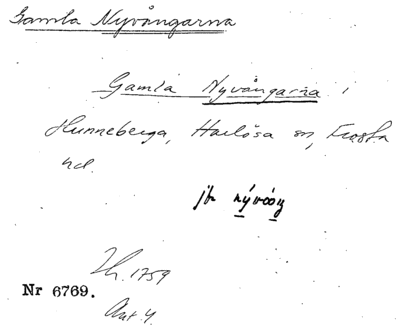 Gamla Nyvångarna
Gamla Nyvångarna i
Hunneberga, Harlösa sn, Frosta
hd.
jfr nývóŋ
Nr 6769.
Akt 4.